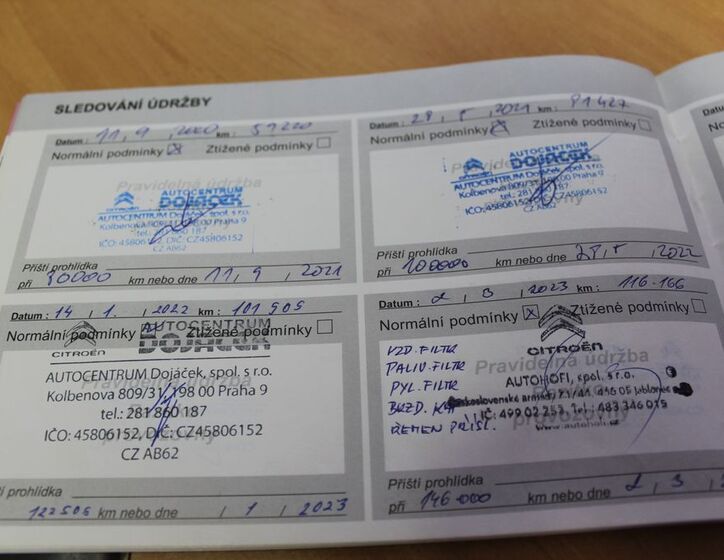 SLEDOVÁNÍ ÚDRŽBY
Datum: 11, 9, 2020 km: 59220
Normální podmínky ☒ Ztížené podmínky ☐
Pravidelná údržba
AUTOCENTRUM
DOJÁČEK
CITROËN
AUTOCENTRUM Dojáček, spol. s r.o.
Kolbenova 809/31, 198 00 Praha 9
tel.: 281 860 187
IČO: 45806152, DIČ: CZ45806152
CZ AB62
Příští prohlídka
při km nebo dne 11, 9, 2021
Datum: km: 81427
Normální podmínky ☒ Ztížené podmínky ☐
Pravidelná údržba
AUTOCENTRUM
DOJÁČEK
CITROËN
AUTOCENTRUM Dojáček, spol. s r.o.
Kolbenova 809/31, 198 00 Praha 9
tel.: 281 860 187
IČO: 45806152, DIČ: CZ45806152
CZ AB62
provozovny
Příští prohlídka
při 100000 km nebo dne 2022
Datum: 14, 1, 2022 km: 101 505
Normální podmínky Ztížené podmínky ☐
AUTOCENTRUM
Dojáček
CITROËN
AUTOCENTRUM Dojáček, spol. s r.o.
Kolbenova 809/31, 198 00 Praha 9
tel.: 281 860 187
IČO: 45806152, DIČ: CZ45806152
CZ AB62
provozovny
Příští prohlídka
km nebo dne , 1, 2023
Datum: 2, 3, 2023 km: 116 166
Normální podmínky ☒ Ztížené podmínky ☐
CITROËN
VZD. FILTR
PALIV. FILTR
PYL. FILTR
BRZD. KAP
ŘEMEN PŘÍSL.
Pravidelná údržba
AUTOHOFI, spol. s r.o.
Československé armády 466 05 Jablonec
IČ: 499 02 253, Tel.: 483 346 015
provozovny
Příští prohlídka
při 146 000 km nebo dne 2, 3, 2